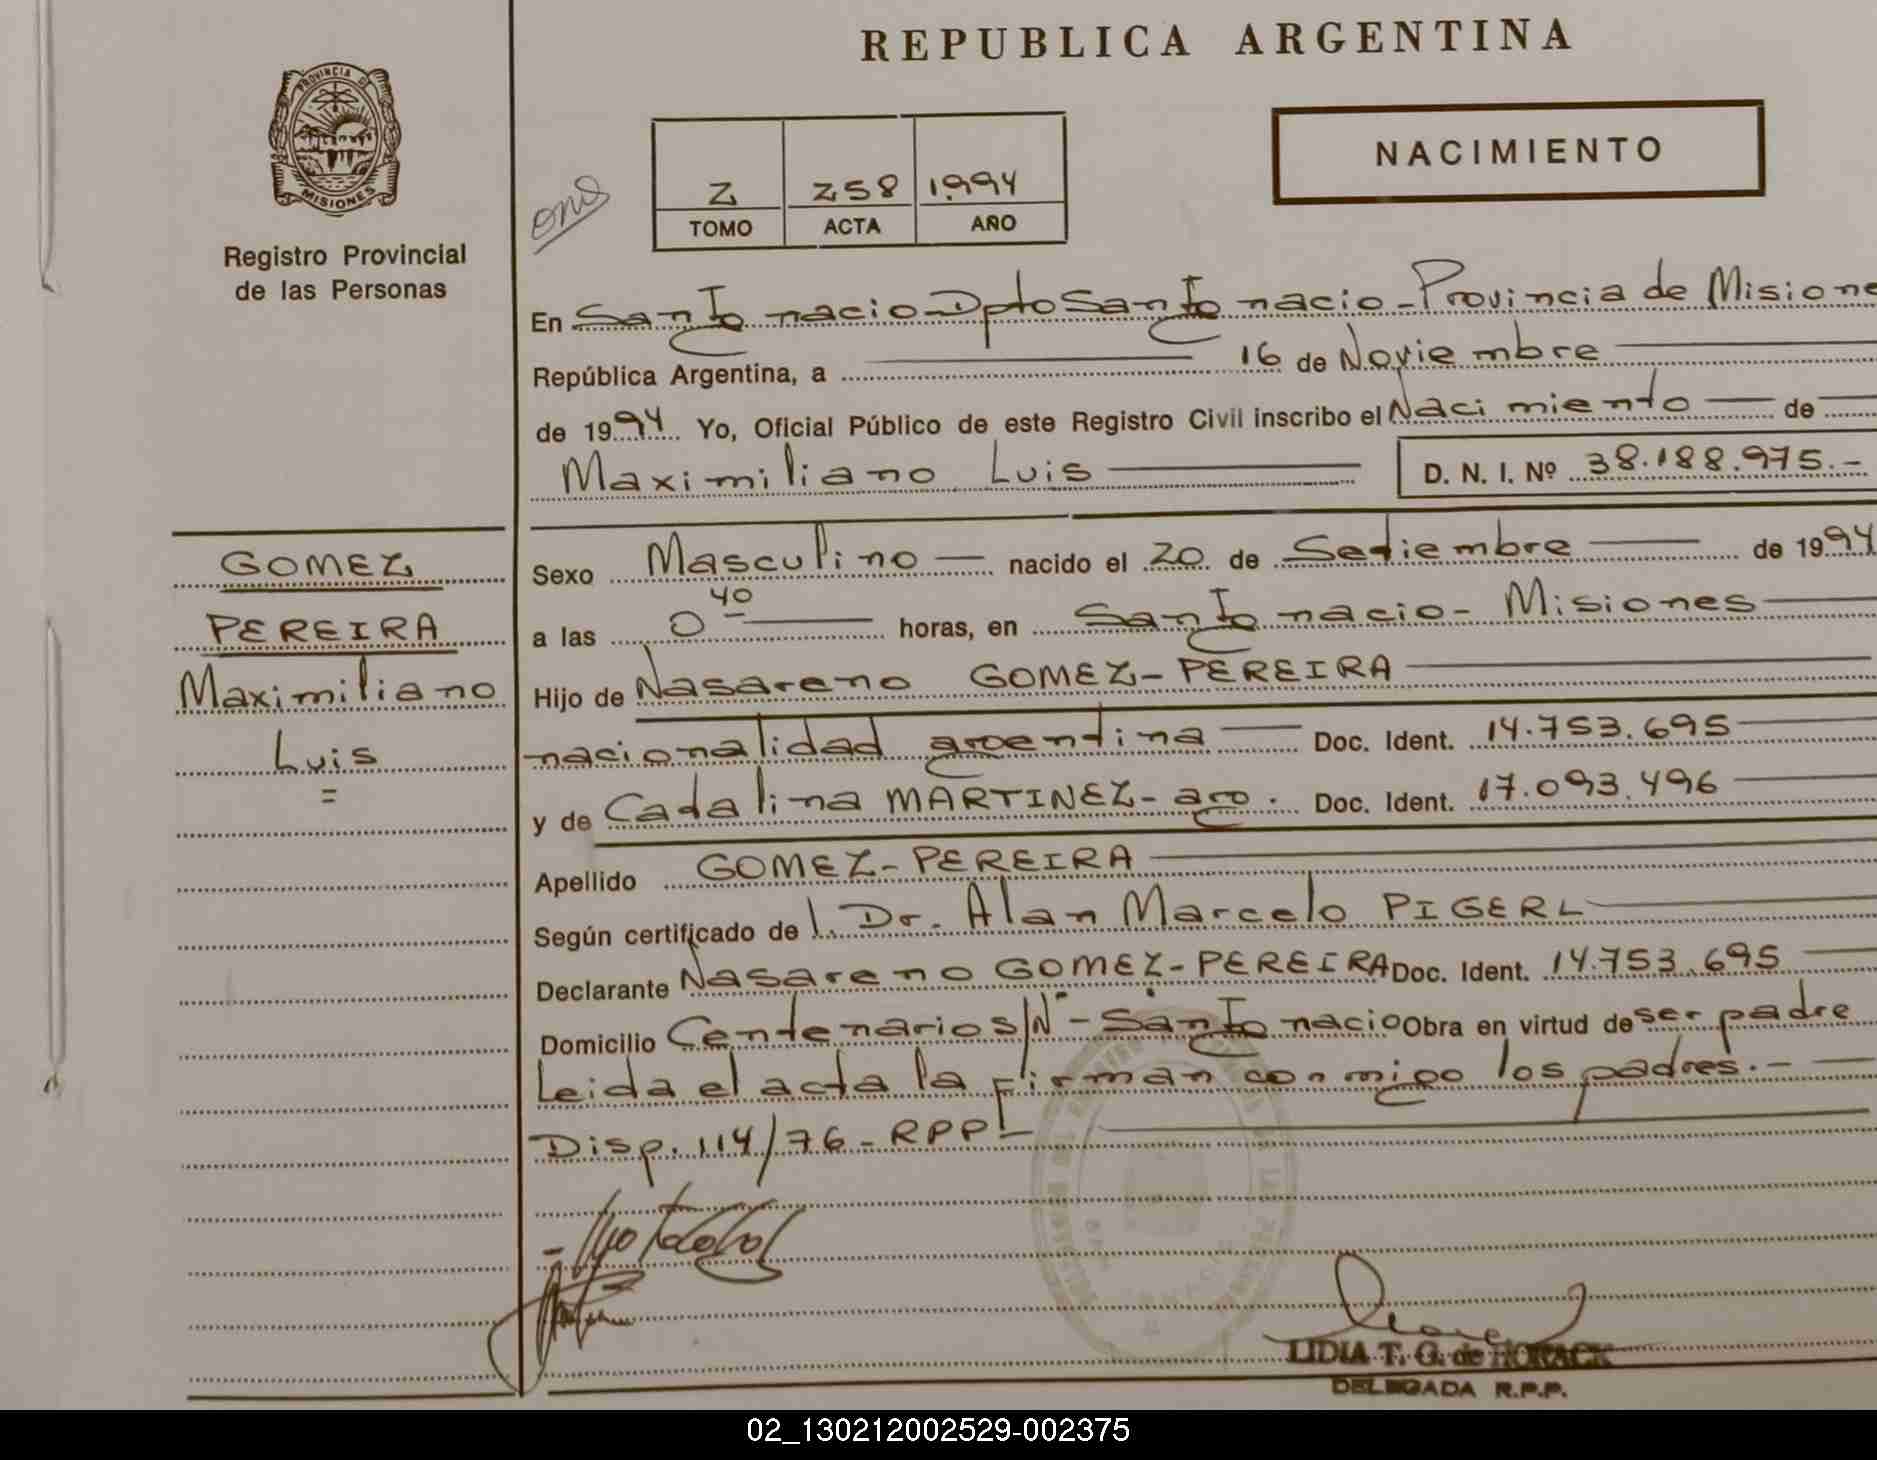 REPUBLICA ARGENTINA
PROVINCIA DE
MISIONES
Registro Provincial
de las Personas
NACIMIENTO
2 258 1994
TOMO ACTA AÑO
En San Ignacio Dpto San Ignacio - Provincia de Misione
República Argentina, a 16 de Noviembre
de 1994 Yo, Oficial Público de este Registro Civil inscribo el Nacimiento de
Maximiliano Luis D. N. I. Nº 38.188.975.-
GOMEZ
PEREIRA
Maximiliano
Luis
Sexo Masculino nacido el 20 de Setiembre de 1994
a las 0 40 horas, en San Ignacio - Misiones
Hijo de Nasareno GOMEZ-PEREIRA
nacionalidad argentina Doc. Ident. 14.753.695
y de Catalina MARTINEZ- arg. Doc. Ident. 17.093.496
Apellido GOMEZ-PEREIRA
Según certificado de l. Dr. Alan Marcelo PIGERL
Declarante Nasareno GOMEZ-PEREIRA Doc. Ident. 14.753.695
Domicilio Centenario S/Nº - San Ignacio Obra en virtud de ser padre
Leida el acta la firman conmigo los padres.-
Disp. 114/76 - RPP
LIDIA T. G. de HORACK
DELEGADA R.P.P.
02_130212002529-002375